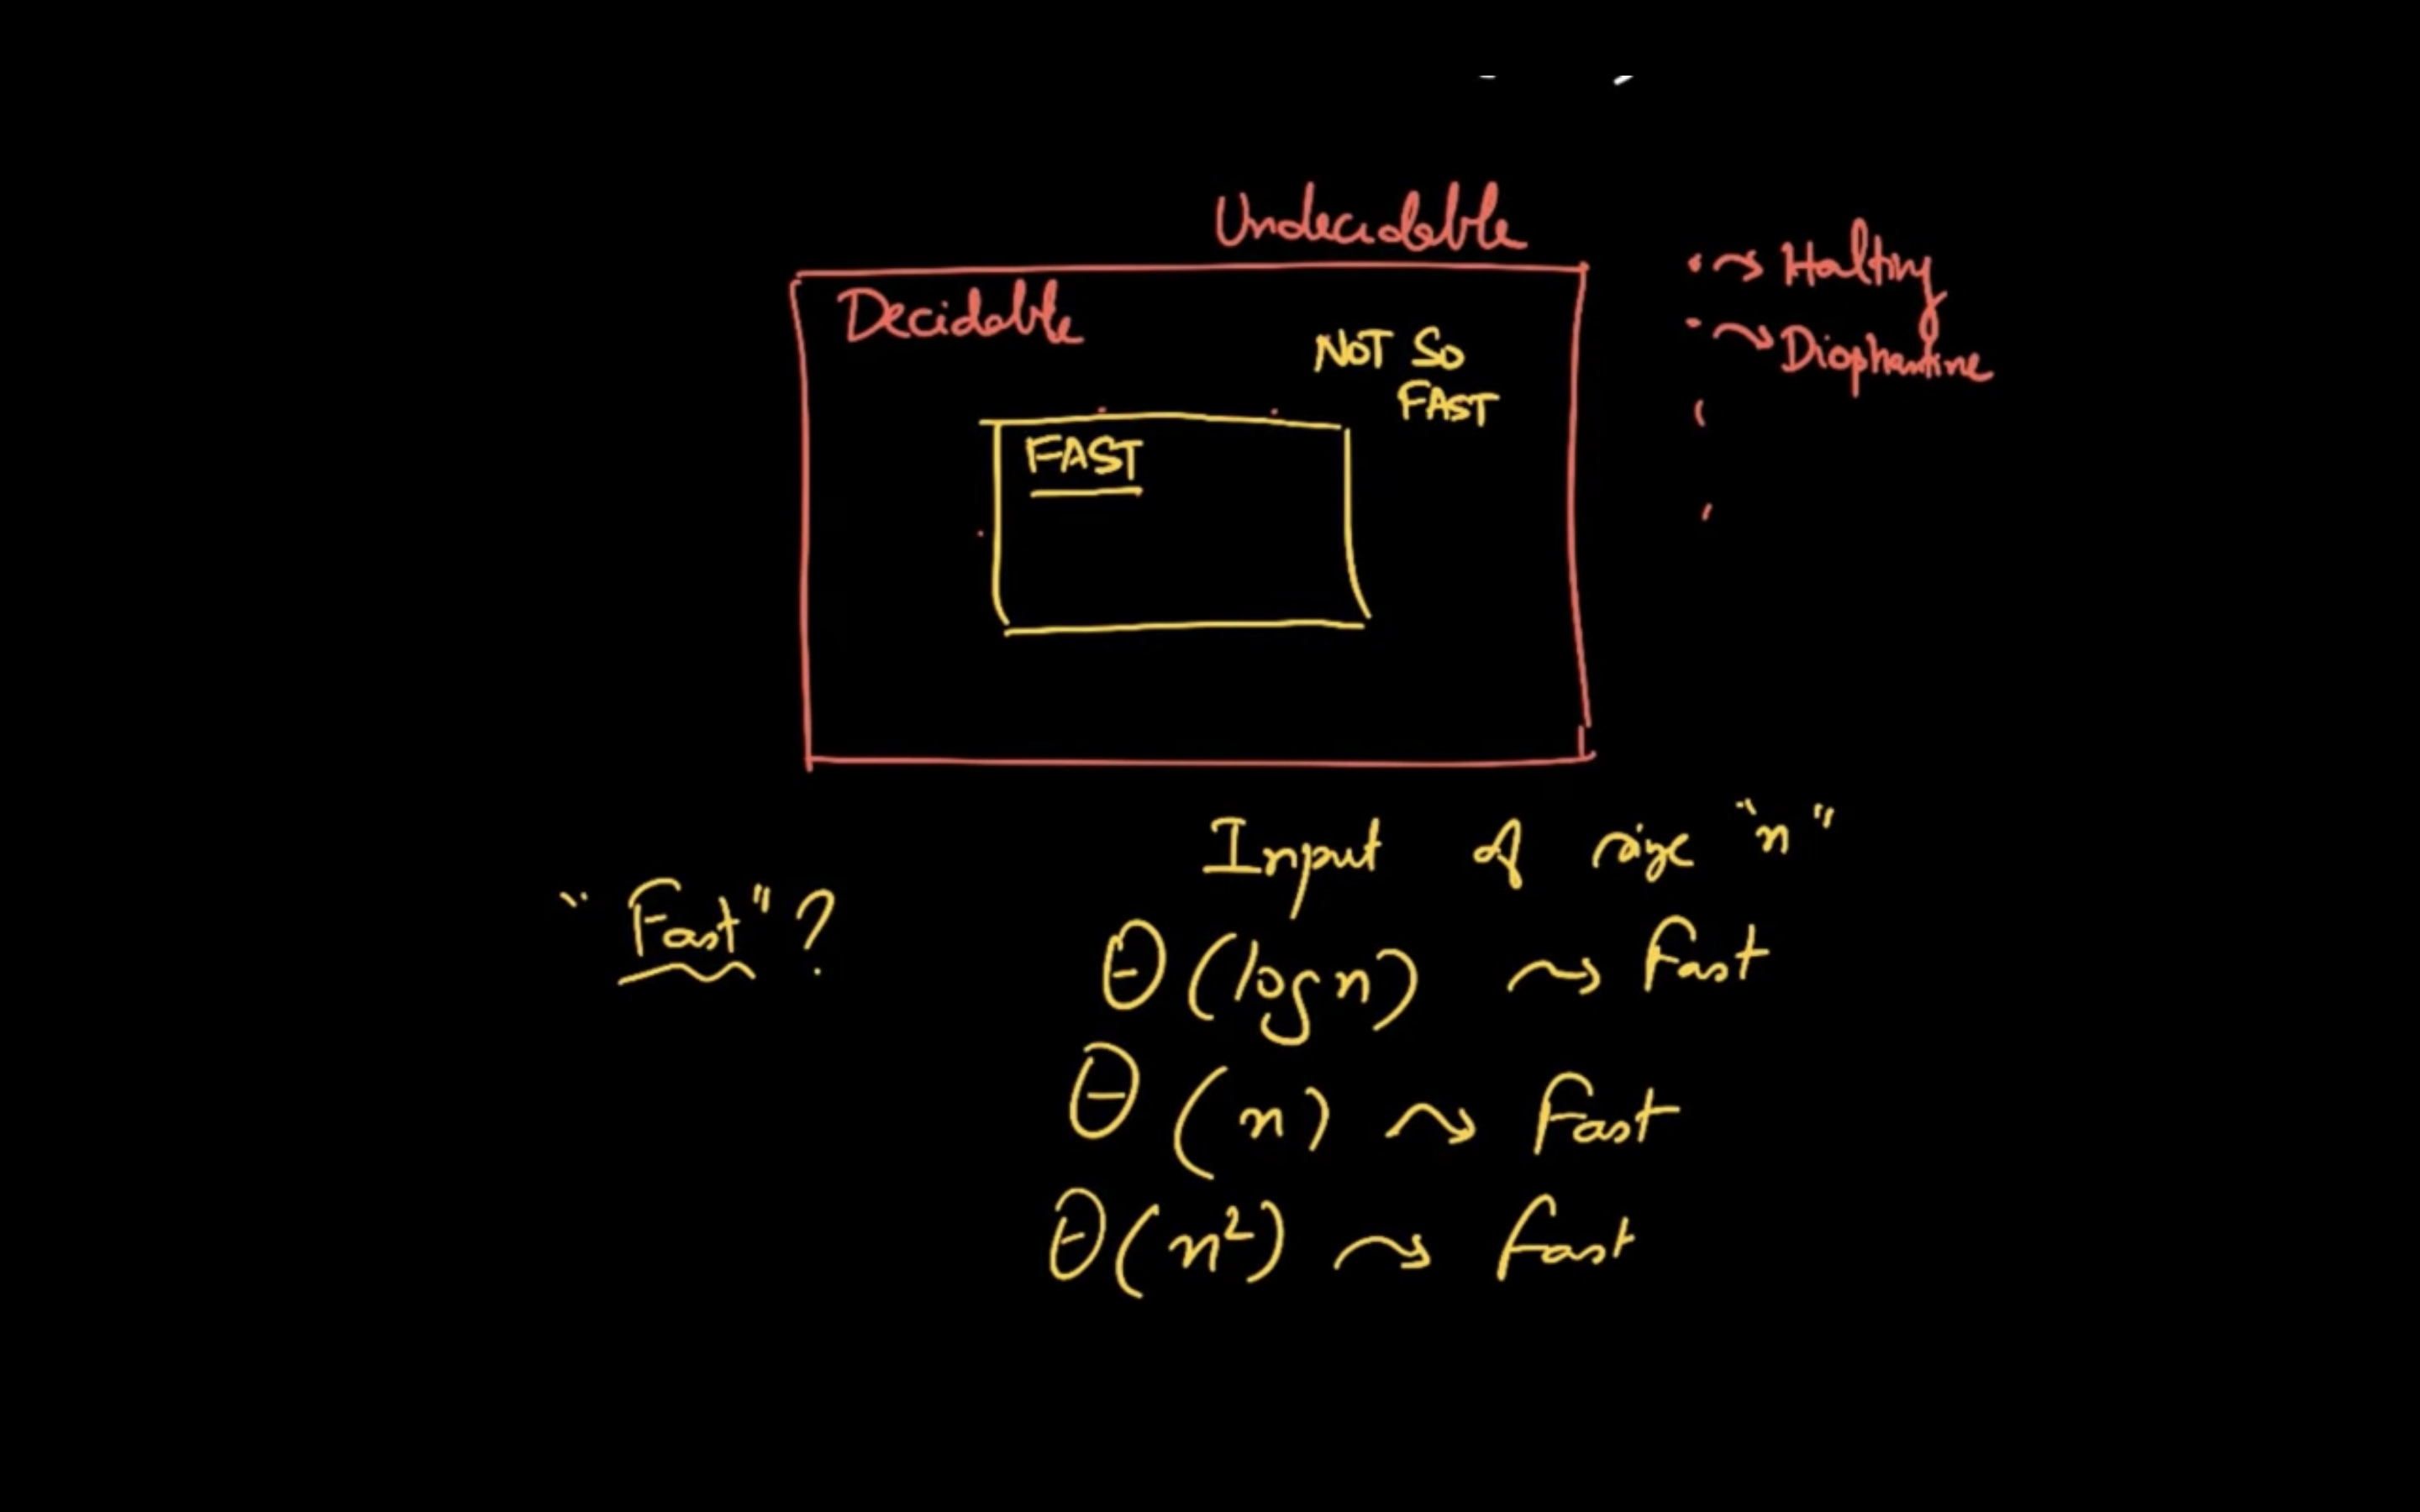 Undecidable
Decidable
NOT SO
FAST
FAST
Halting
Diophantine
Input of size "n"
"Fast"?
Θ(log n) ⇝ Fast
Θ(n) ⇝ Fast
Θ(n²) ⇝ Fast